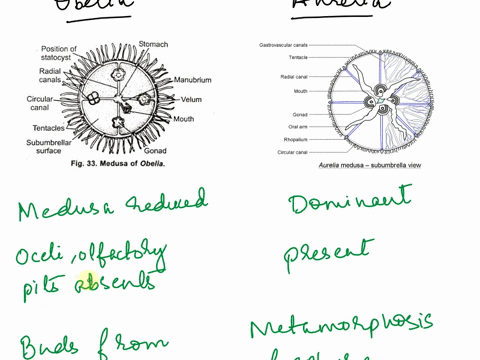 Obelia
Aurelia
Position of statocyst
Stomach
Radial canals
Manubrium
Circular canal
Velum
Mouth
Tentacles
Subumbrellar surface
Gonad
Fig. 33. Medusa of Obelia.
Gastrovascular canals
Tentacle
Radial canal
Mouth
Gonad
Oral arm
Rhopalium
Circular canal
Aurelia medusa – subumbrella view
Medusa reduced
Dominant
Oceli, olfactory
pits absents
present
Buds from
Metamorphosis